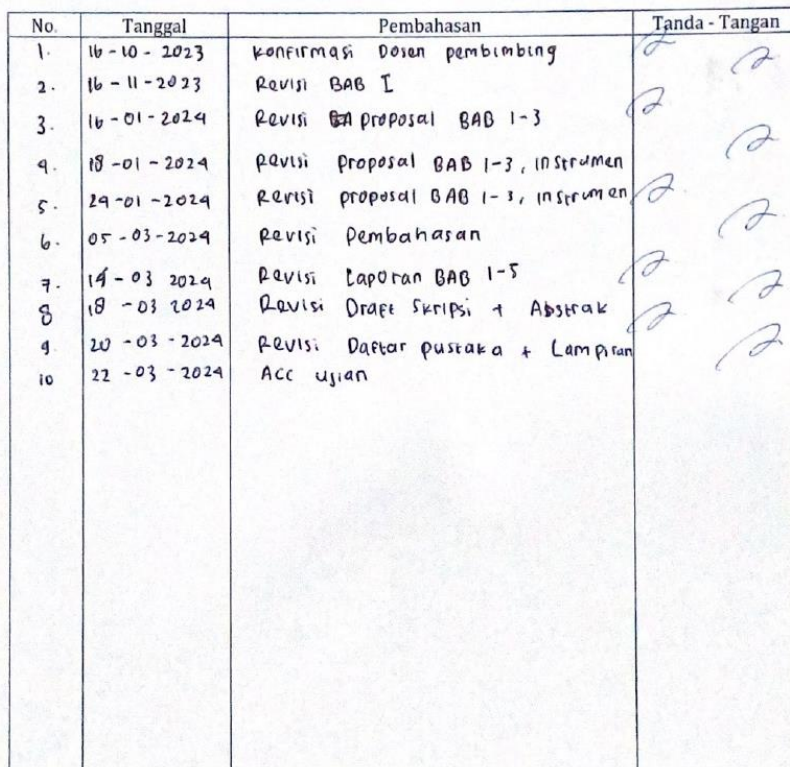 No. Tanggal Pembahasan Tanda - Tangan
1. 16-10-2023 Konfirmasi Dosen pembimbing
2. 16-11-2023 Revisi BAB I
3. 16-01-2024 Revisi proposal BAB 1-3
4. 18-01-2024 Revisi proposal BAB 1-3, instrumen
5. 24-01-2024 Revisi proposal BAB 1-3, instrumen
6. 05-03-2024 Revisi Pembahasan
7. 14-03 2024 Revisi Laporan BAB 1-5
8 18-03 2024 Revisi Draft Skripsi + Abstrak
9. 20-03-2024 Revisi Daftar pustaka + Lampiran
10 22-03-2024 ACC Ujian